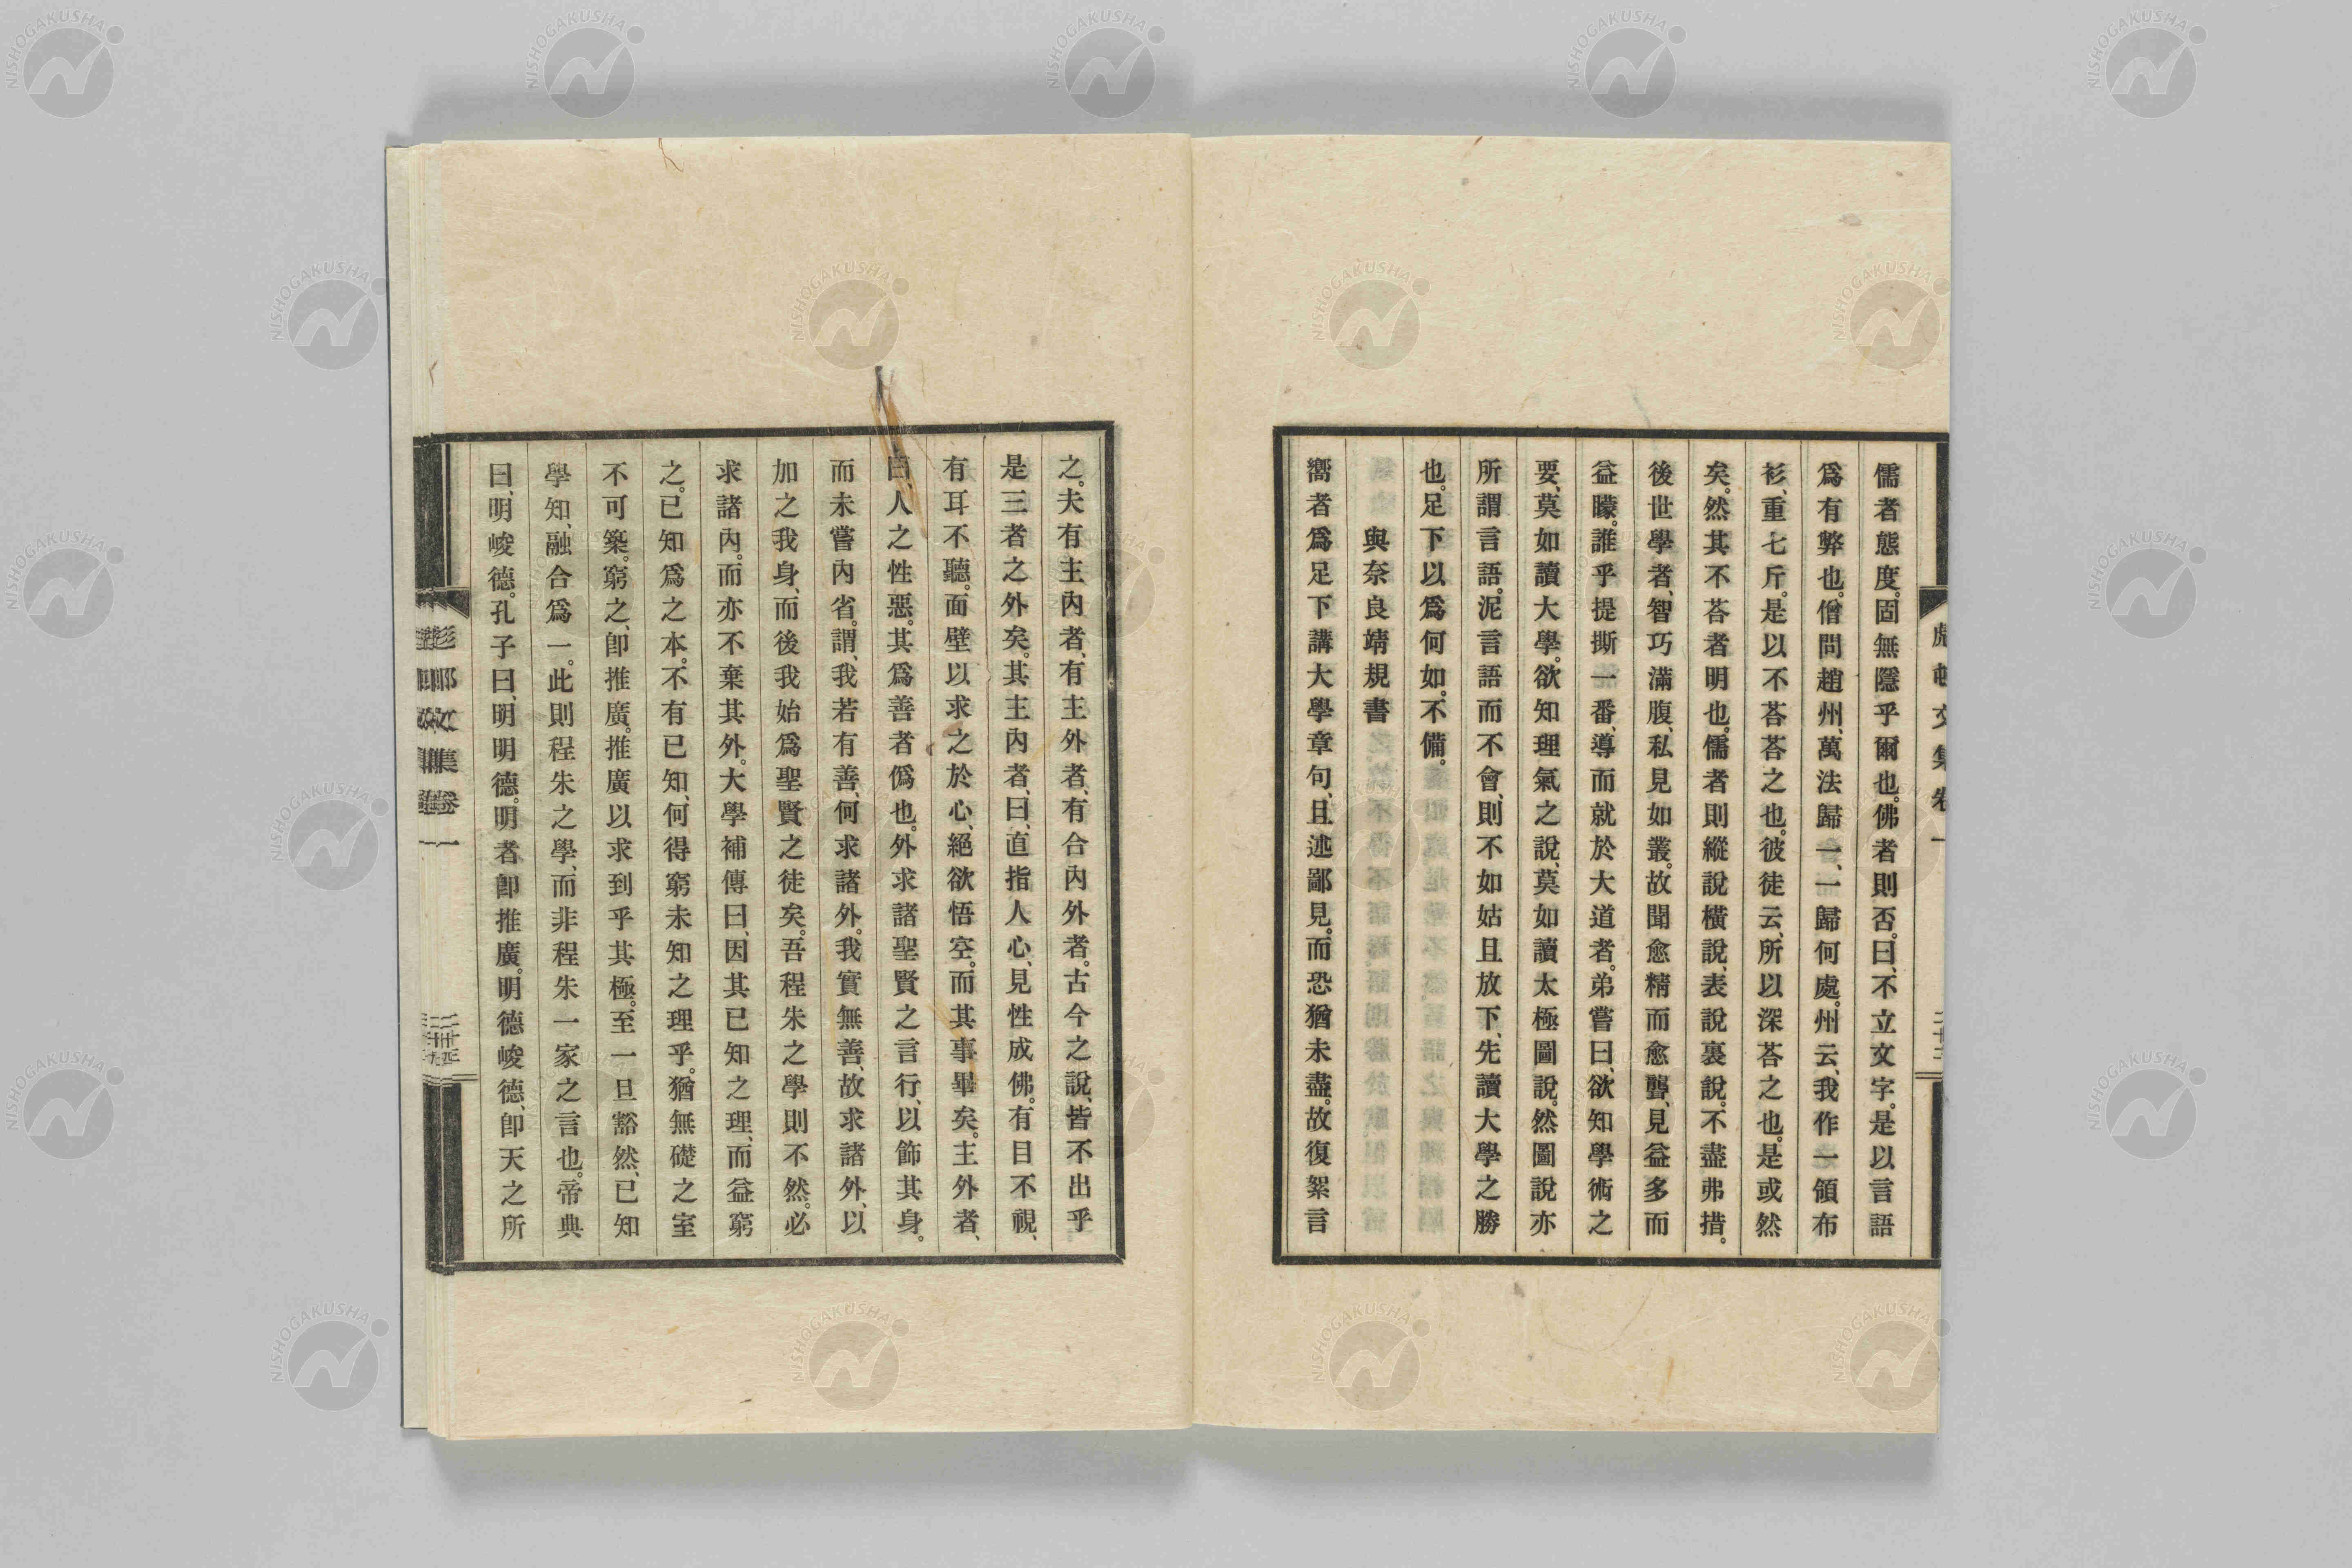 儒者態度。固無隱乎爾也。佛者則否。曰、不立文字。是以言語
爲有弊也。僧問趙州、萬法歸一、一歸何處。州云、我作一領布
衫、重七斤。是以不荅荅之也。彼徒云、所以深荅之也。是或然
矣。然其不荅者明也。儒者則縱說橫說、表說裏說。不盡弗措。
後世學者、智巧滿腹、私見如叢。故聞愈精而愈聾、見益多而
益矇。誰乎提撕一番、導而就於大道者。弟嘗曰、欲知學術之
要、莫如讀大學。欲知理氣之說、莫如讀太極圖說。然圖說亦
所謂言語。泥言語而不會、則不如姑且放下、先讀大學之勝
也。足下以爲何如。不備。
與奈良靖規書
嚮者爲足下講大學章句、且述鄙見。而恐猶未盡。故復絮言
之。夫有主內者、有主外者、有合內外者。古今之說、皆不出乎
是三者之外矣。其主內者、曰、直指人心、見性成佛。有目不視、
有耳不聽。面壁以求之於心、絕欲悟空。而其事畢矣。主外者、
曰、人之性惡。其爲善者僞也。外求諸聖賢之言行、以飾其身。
而未嘗內省。謂、我若有善、何求諸外。我實無善、故求諸外、以
加之我身、而後我始爲聖賢之徒矣。吾程朱之學則不然。必
求諸內。而亦不棄其外。大學補傳曰、因其已知之理、而益窮
之。已知爲之本。不有已知、何得窮未知之理乎。猶無礎之室
不可築。窮之、卽推廣。推廣以求到乎其極。至一旦豁然、已知
學知、融合爲一。此則程朱之學、而非程朱一家之言也。帝典
曰、明峻德。孔子曰、明明德。明者卽推廣。明德峻德、卽天之所
NISHOGAKUSHA